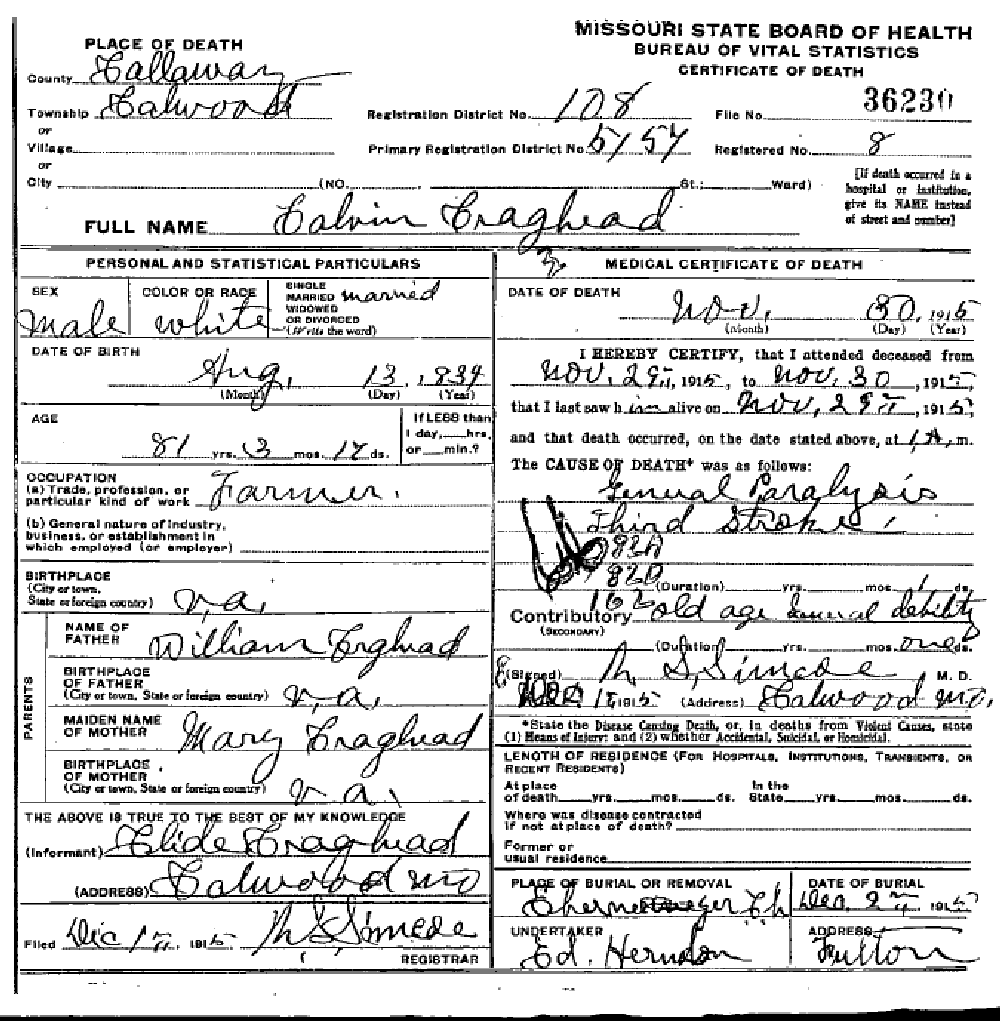 MISSOURI STATE BOARD OF HEALTH
BUREAU OF VITAL STATISTICS
CERTIFICATE OF DEATH
PLACE OF DEATH
County Callaway
Township Calwood
or
Village
or
City (NO. St.; Ward)
Registration District No. 108
File No. 36230
Primary Registration District No. 5157
Registered No. 8
[If death occurred in a
hospital or institution,
give its NAME instead
of street and number]
FULL NAME Calvin Craghead
PERSONAL AND STATISTICAL PARTICULARS
SEX
Male
COLOR OR RACE
White
SINGLE
MARRIED married
WIDOWED
OR DIVORCED
(Write the word)
DATE OF BIRTH
Aug, 13, 1834
(Month) (Day) (Year)
AGE
81 yrs. 3 mos. 17 ds.
If LESS than
1 day, hrs.
or min.?
OCCUPATION
(a) Trade, profession, or
particular kind of work Farmer.
(b) General nature of industry,
business, or establishment in
which employed (or employer)
BIRTHPLACE
(City or town,
State or foreign country) Va,
PARENTS
NAME OF
FATHER William Craghead
BIRTHPLACE
OF FATHER
(City or town, State or foreign country) Va,
MAIDEN NAME
OF MOTHER Mary Craghead
BIRTHPLACE
OF MOTHER
(City or town, State or foreign country) Va,
THE ABOVE IS TRUE TO THE BEST OF MY KNOWLEDGE
(Informant) Clide Craghead
(ADDRESS) Calwood Mo
Filed Dec 1st, 1915 N S Simcoe
REGISTRAR
MEDICAL CERTIFICATE OF DEATH
DATE OF DEATH
Nov, 30, 1915
(Month) (Day) (Year)
I HEREBY CERTIFY, that I attended deceased from
Nov. 29, 1915, to Nov. 30, 1915,
that I last saw him alive on Nov, 29, 1915,
and that death occurred, on the date stated above, at 1 A, m.
The CAUSE OF DEATH* was as follows:
General Paralysis
Third Stroke,
82A
82D
(Duration) yrs. mos. 1 ds.
162
Contributory old age General debility
(SECONDARY)
(Duration) yrs. mos. one ds.
(Signed) N, S, Simcoe M. D.
Dec 1 1915 (Address) Calwood Mo,
*State the Disease Causing Death, or, in deaths from Violent Causes, state
(1) Means of Injury; and (2) whether Accidental, Suicidal, or Homicidal.
LENGTH OF RESIDENCE (FOR HOSPITALS, INSTITUTIONS, TRANSIENTS, OR
RECENT RESIDENTS)
At place
of death yrs. mos. ds.
In the
State yrs. mos. ds.
Where was disease contracted
if not at place of death?
Former or
usual residence
PLACE OF BURIAL OR REMOVAL
Ch
DATE OF BURIAL
Dec, 2, 1915
UNDERTAKER
Ed. Herndon
ADDRESS
Fulton